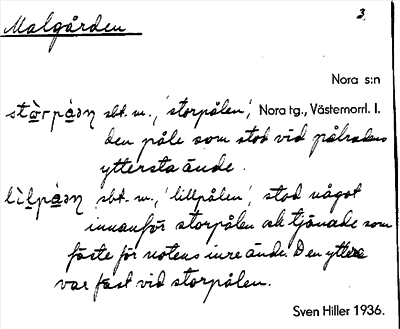 Malgården
3.
Nora s:n
stò̲rpà̲əṇ sbt. m., 'storpålen', Nora tg., Västernorrl. l.
den påle som stod vid pålradens
yttersta ände.
lìl̲pà̲əṇ sbt. m., 'lillpålen', stod något
innanför storpålen och tjänade som
fäste för notens inre ände. Den yttre
var fäst vid storpålen.
Sven Hiller 1936.